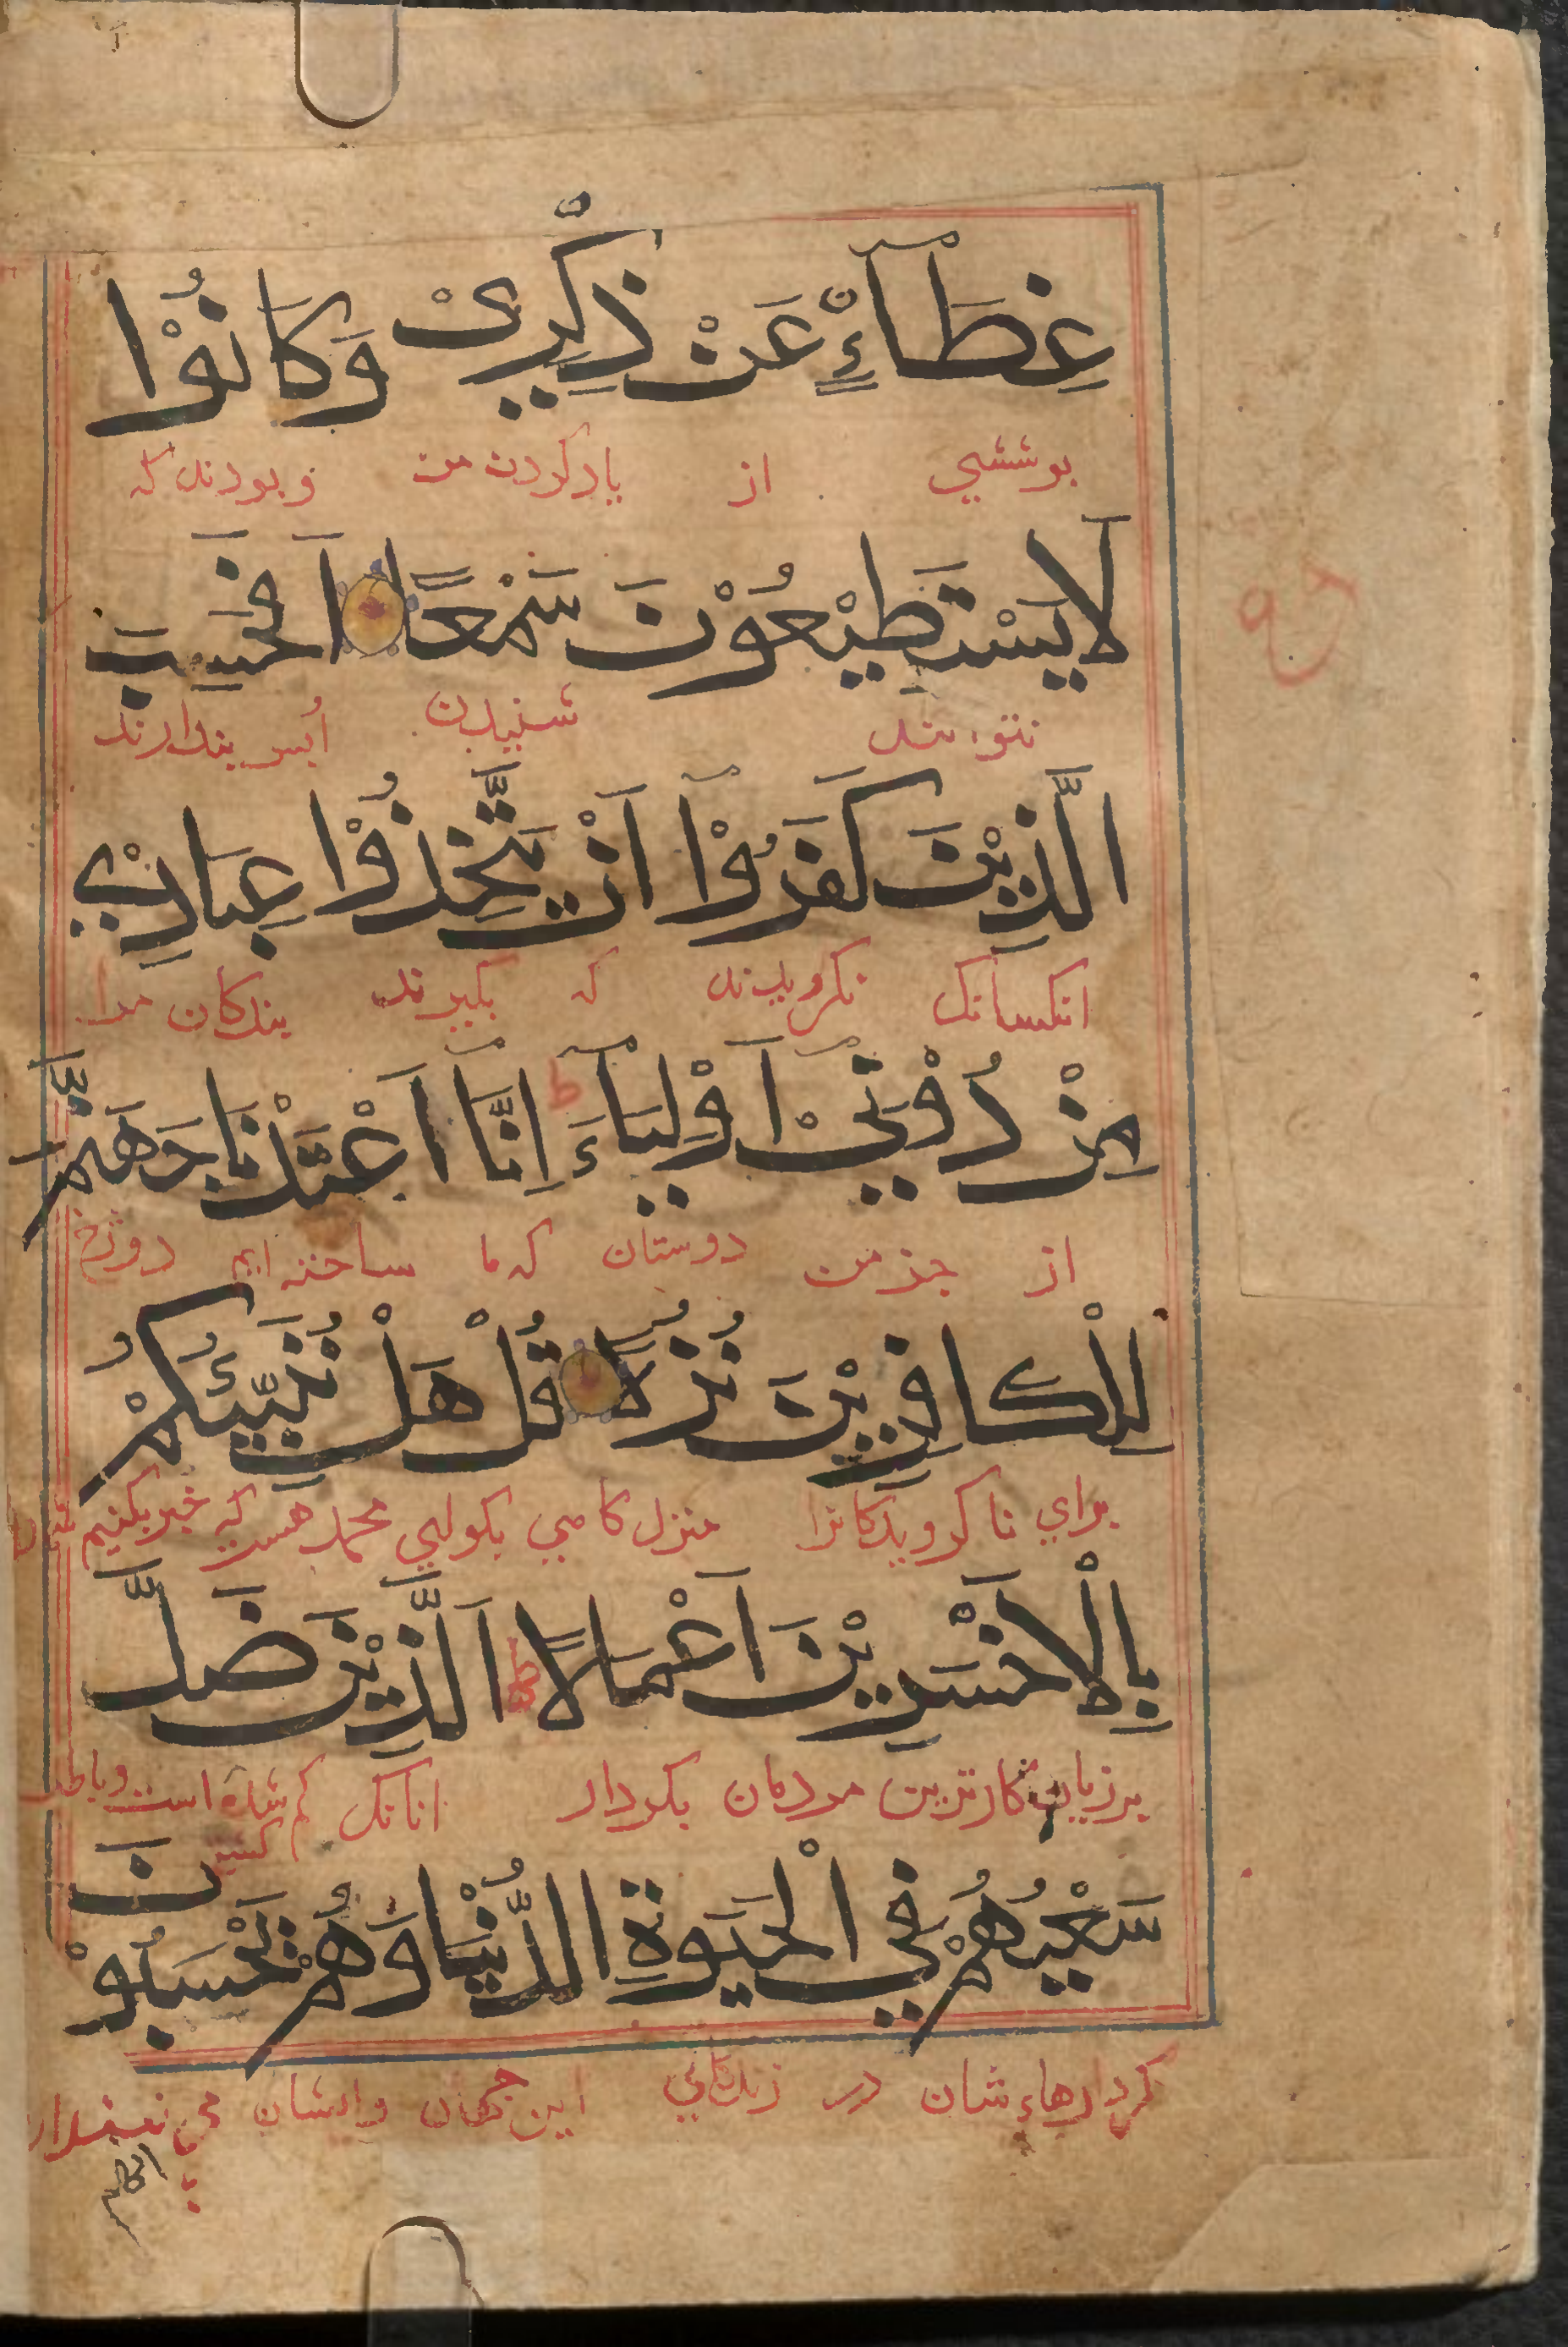 غِطَآءٍ عَنْ ذِكْرِیْ وَكَانُوْا
بوششي از يادكردن من و بودند كه
لَا يَسْتَطِيْعُوْنَ سَمْعًا اَفَحَسِبَ
نتوانند شنيدن ايس پندارند
الَّذِيْنَ كَفَرُوْٓا اَنْ يَّتَّخِذُوْا عِبَادِيْ
انكسانك نكرويدند كه بكيرند بندكان مرا
مِنْ دُوْنِيْٓ اَوْلِيَآءَ ط اِنَّآ اَعْتَدْنَا جَهَنَّمَ
از جز من دوستان كه ما ساخته ايم دوزخ
لِلْكَافِرِيْنَ نُزُلًا قُلْ هَلْ نُنَبِّئُكُمْ
براي ناكرويدكانرا منزل كا هي بكو اي محمد هست كه خبر بكنيم شما را
بِالْاَخْسَرِيْنَ اَعْمَالًا ط اَلَّذِيْنَ ضَلَّ
بر زيان كارترين مردمان بكردار انانك كم شده است و باطل
سَعْيُهُمْ فِي الْحَيٰوةِ الدُّنْيَا وَهُمْ يَحْسَبُوْنَ
كردارهاء شان در زندكاني اين جهان و ايشان مي
انهم